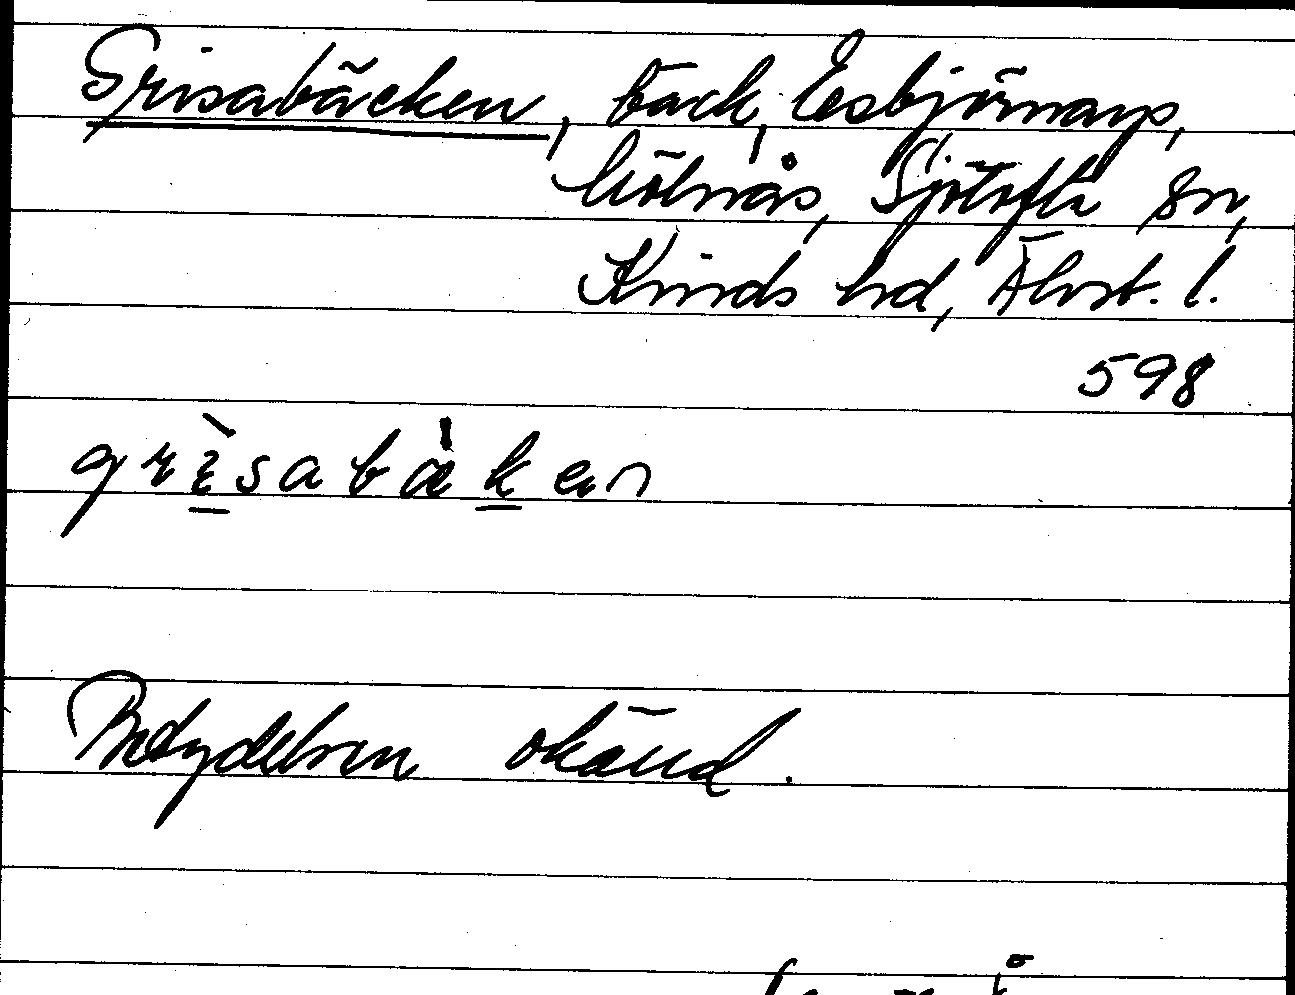 Grisabäcken, bäck, Esbjörnarp,
Mölnås, Sjötofta sn,
Kinds hd, Älvsb. l.
598
grisabäken
Betydelsen okänd.